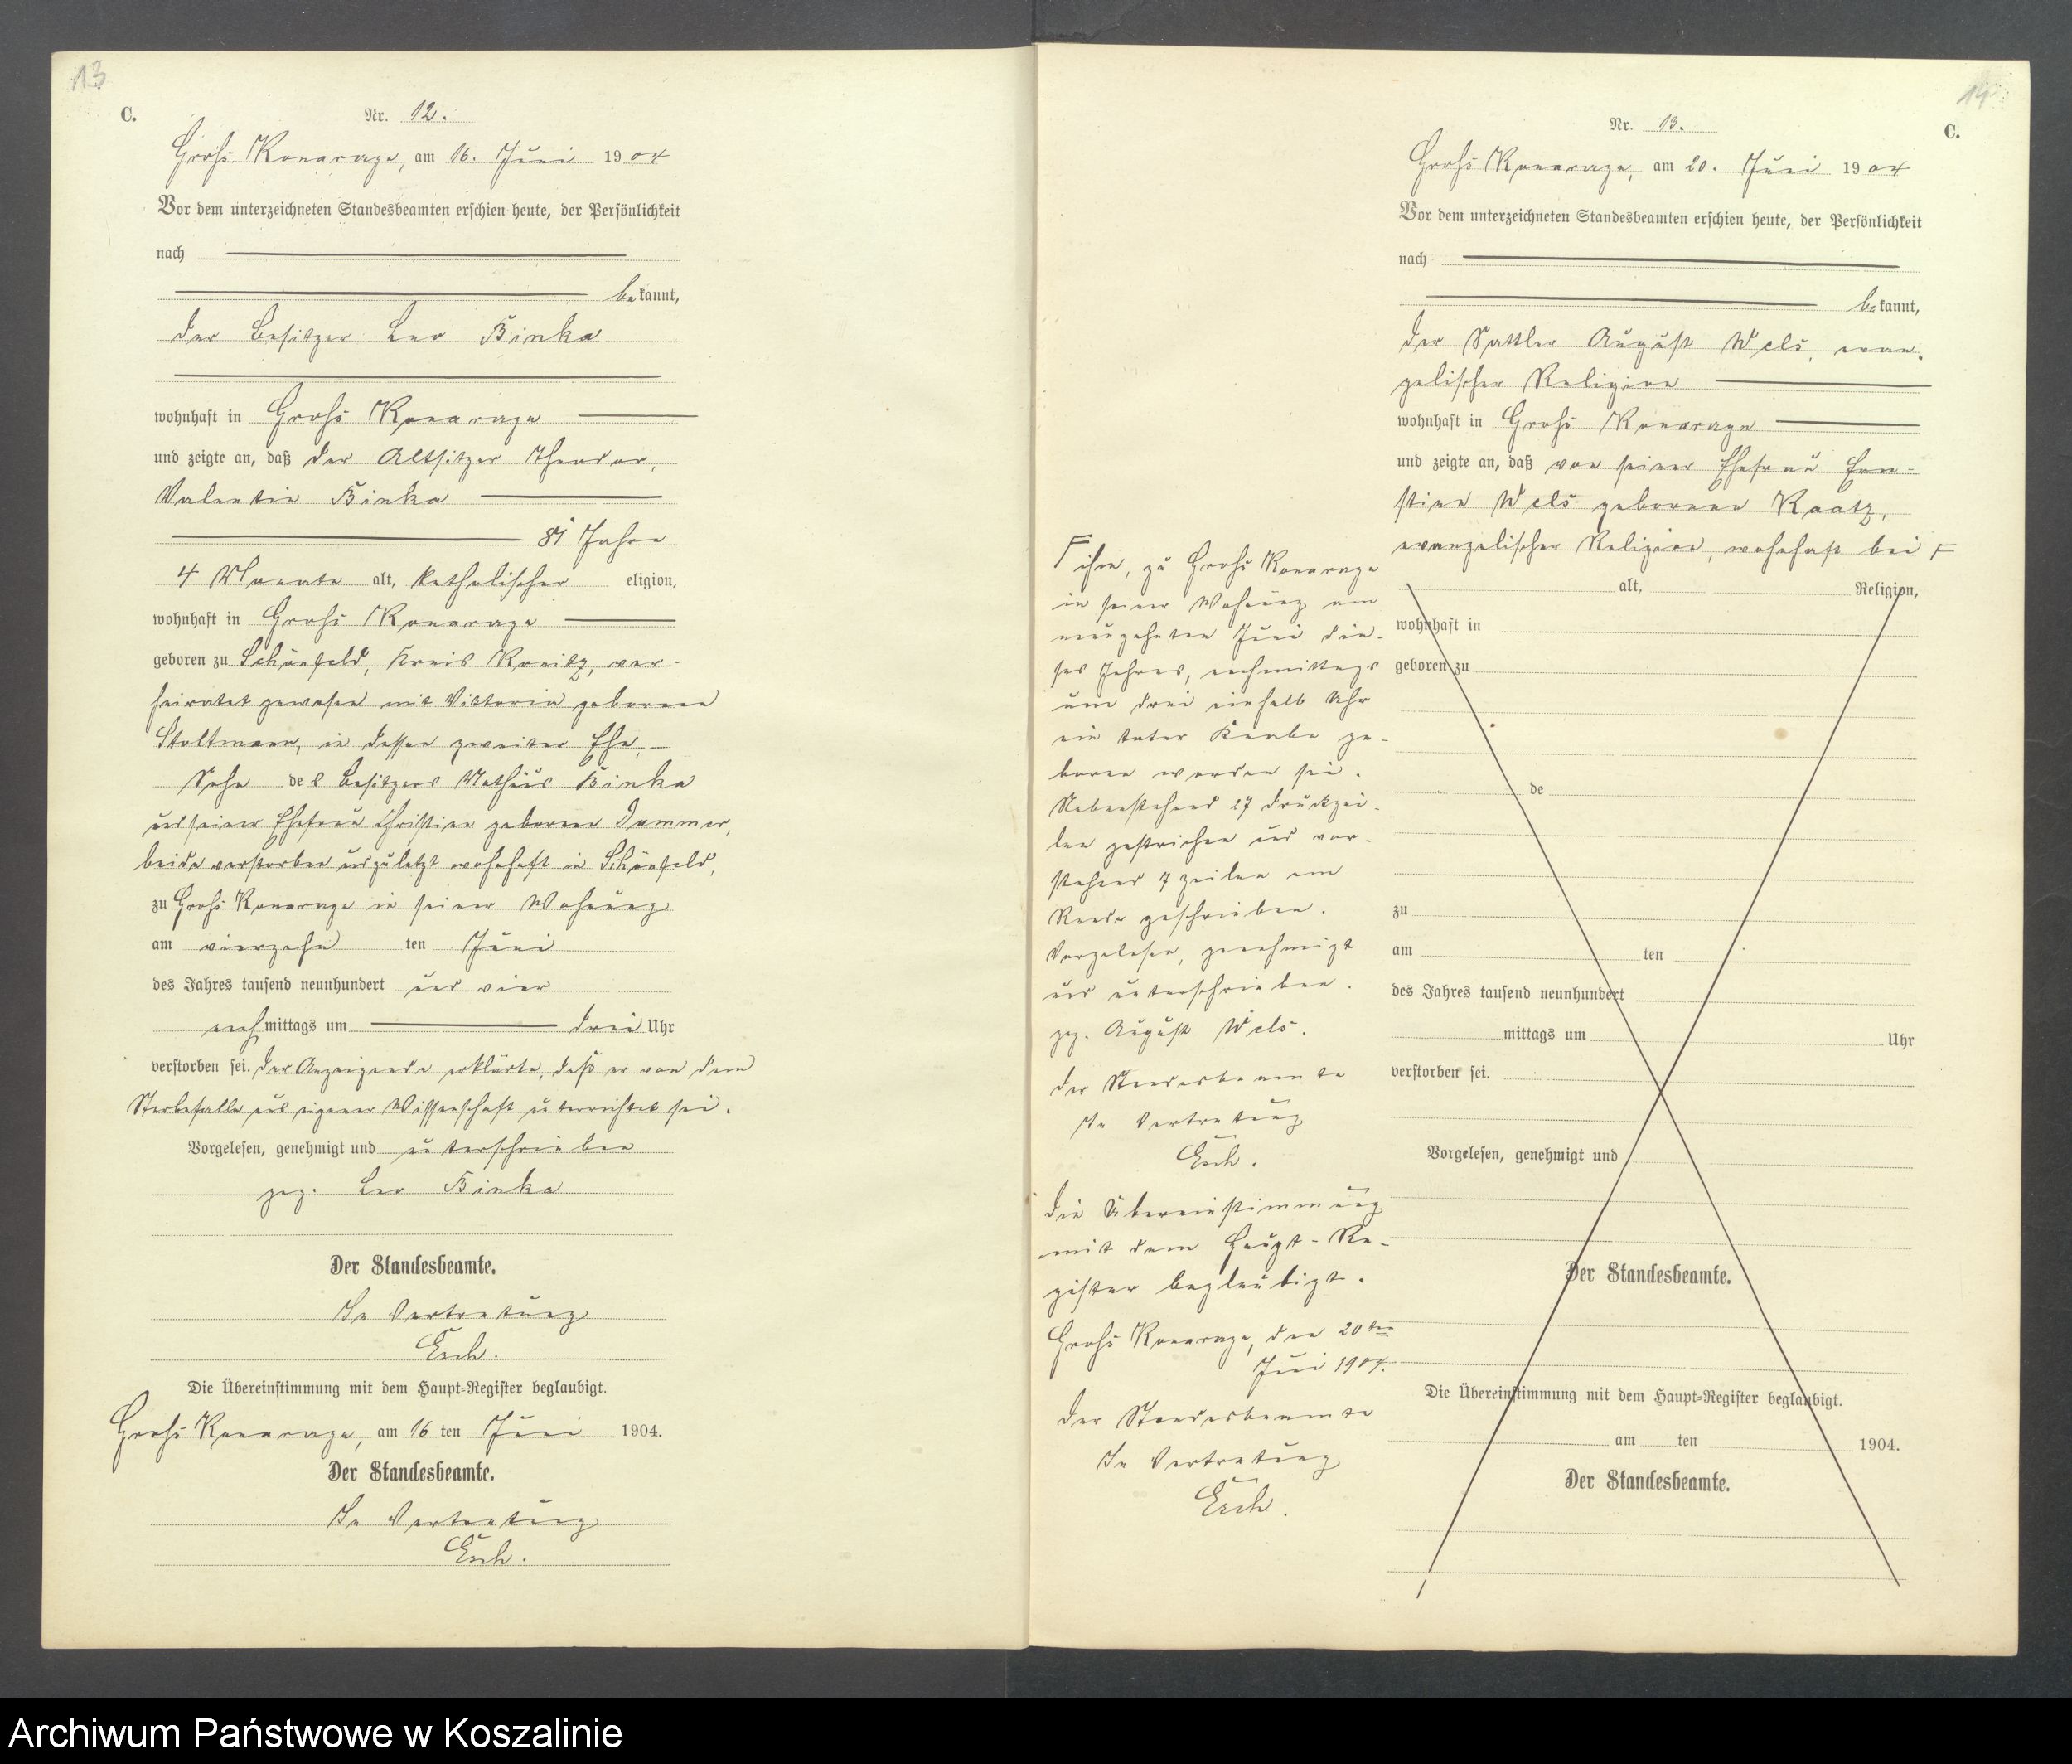 13
C.
Nr. 12.
Groß Konarzyn, am 16. Juni 1904
Vor dem unterzeichneten Standesbeamten erschien heute, der Persönlichkeit
nach
bekannt,
der Besitzer Leo Binka
wohnhaft in Groß Konarzyn
und zeigte an, daß der Altsitzer Theodor,
Valentin Binka
81 Jahre
4 Monate alt, katholischer eligion,
wohnhaft in Groß Konarzyn
geboren zu Schönfeld, Kreis Konitz, ver-
heiratet gewesen mit Viktoria geborenen
Stoltmann, in dessen zweiter Ehe,
Sohn des Besitzers Mathäus Binka
und seiner Ehefrau Christine geborene Dammer,
beide verstorben und zuletzt wohnhaft in Schönfeld,
zu Groß Konarzyn in seiner Wohnung
am vierzehn ten Juni
des Jahres tausend neunhundert und vier
nachmittags um drei Uhr
verstorben sei. Der Anzeigende erklärte, daß er von dem
Sterbefalle aus eigener Wissenschaft unterrichtet sei.
Vorgelesen, genehmigt und unterschrieben
gez. Leo Binka
Der Standesbeamte.
In Vertretung
Esch.
Die Übereinstimmung mit dem Haupt-Register beglaubigt.
Groß Konarzyn, am 16 ten Juni 1904.
Der Standesbeamte.
In Vertretung
Esch.
14
C.
Nr. 13.
Groß Konarzyn, am 20. Juni 1904
Vor dem unterzeichneten Standesbeamten erschien heute, der Persönlichkeit
nach
bekannt,
der Sattler August Wels, evan-
gelischer Religion
wohnhaft in Groß Konarzyn
und zeigte an, daß von seiner Ehefrau Ern-
stine Wels geborenen Raatz,
evangelischer Religion, wohnhaft bei
ihm, zu Groß Konarzyn
in seiner Wohnung am
neunzehnten Juni die-
ses Jahres, nachmittags
um drei einhalb Uhr
ein toter Knabe ge-
boren worden sei.
Nebenstehend 27 Druckzei-
len gestrichen und vor-
stehend 7 Zeilen am
Rande geschrieben.
Vorgelesen, genehmigt
und unterschrieben.
gez. August Wels.
Der Standesbeamte
In Vertretung
Esch.
Die Übereinstimmung
mit dem Haupt-Re-
gister beglaubigt.
Groß Konarzyn, den 20ten
Juni 1904.
Der Standesbeamte
In Vertretung
Esch.
alt, Religion,
wohnhaft in
geboren zu
de
zu
am ten
des Jahres tausend neunhundert
mittags um Uhr
verstorben sei.
Vorgelesen, genehmigt und
Der Standesbeamte.
Die Übereinstimmung mit dem Haupt-Register beglaubigt.
am ten 1904.
Der Standesbeamte.
Archiwum Państwowe w Koszalinie